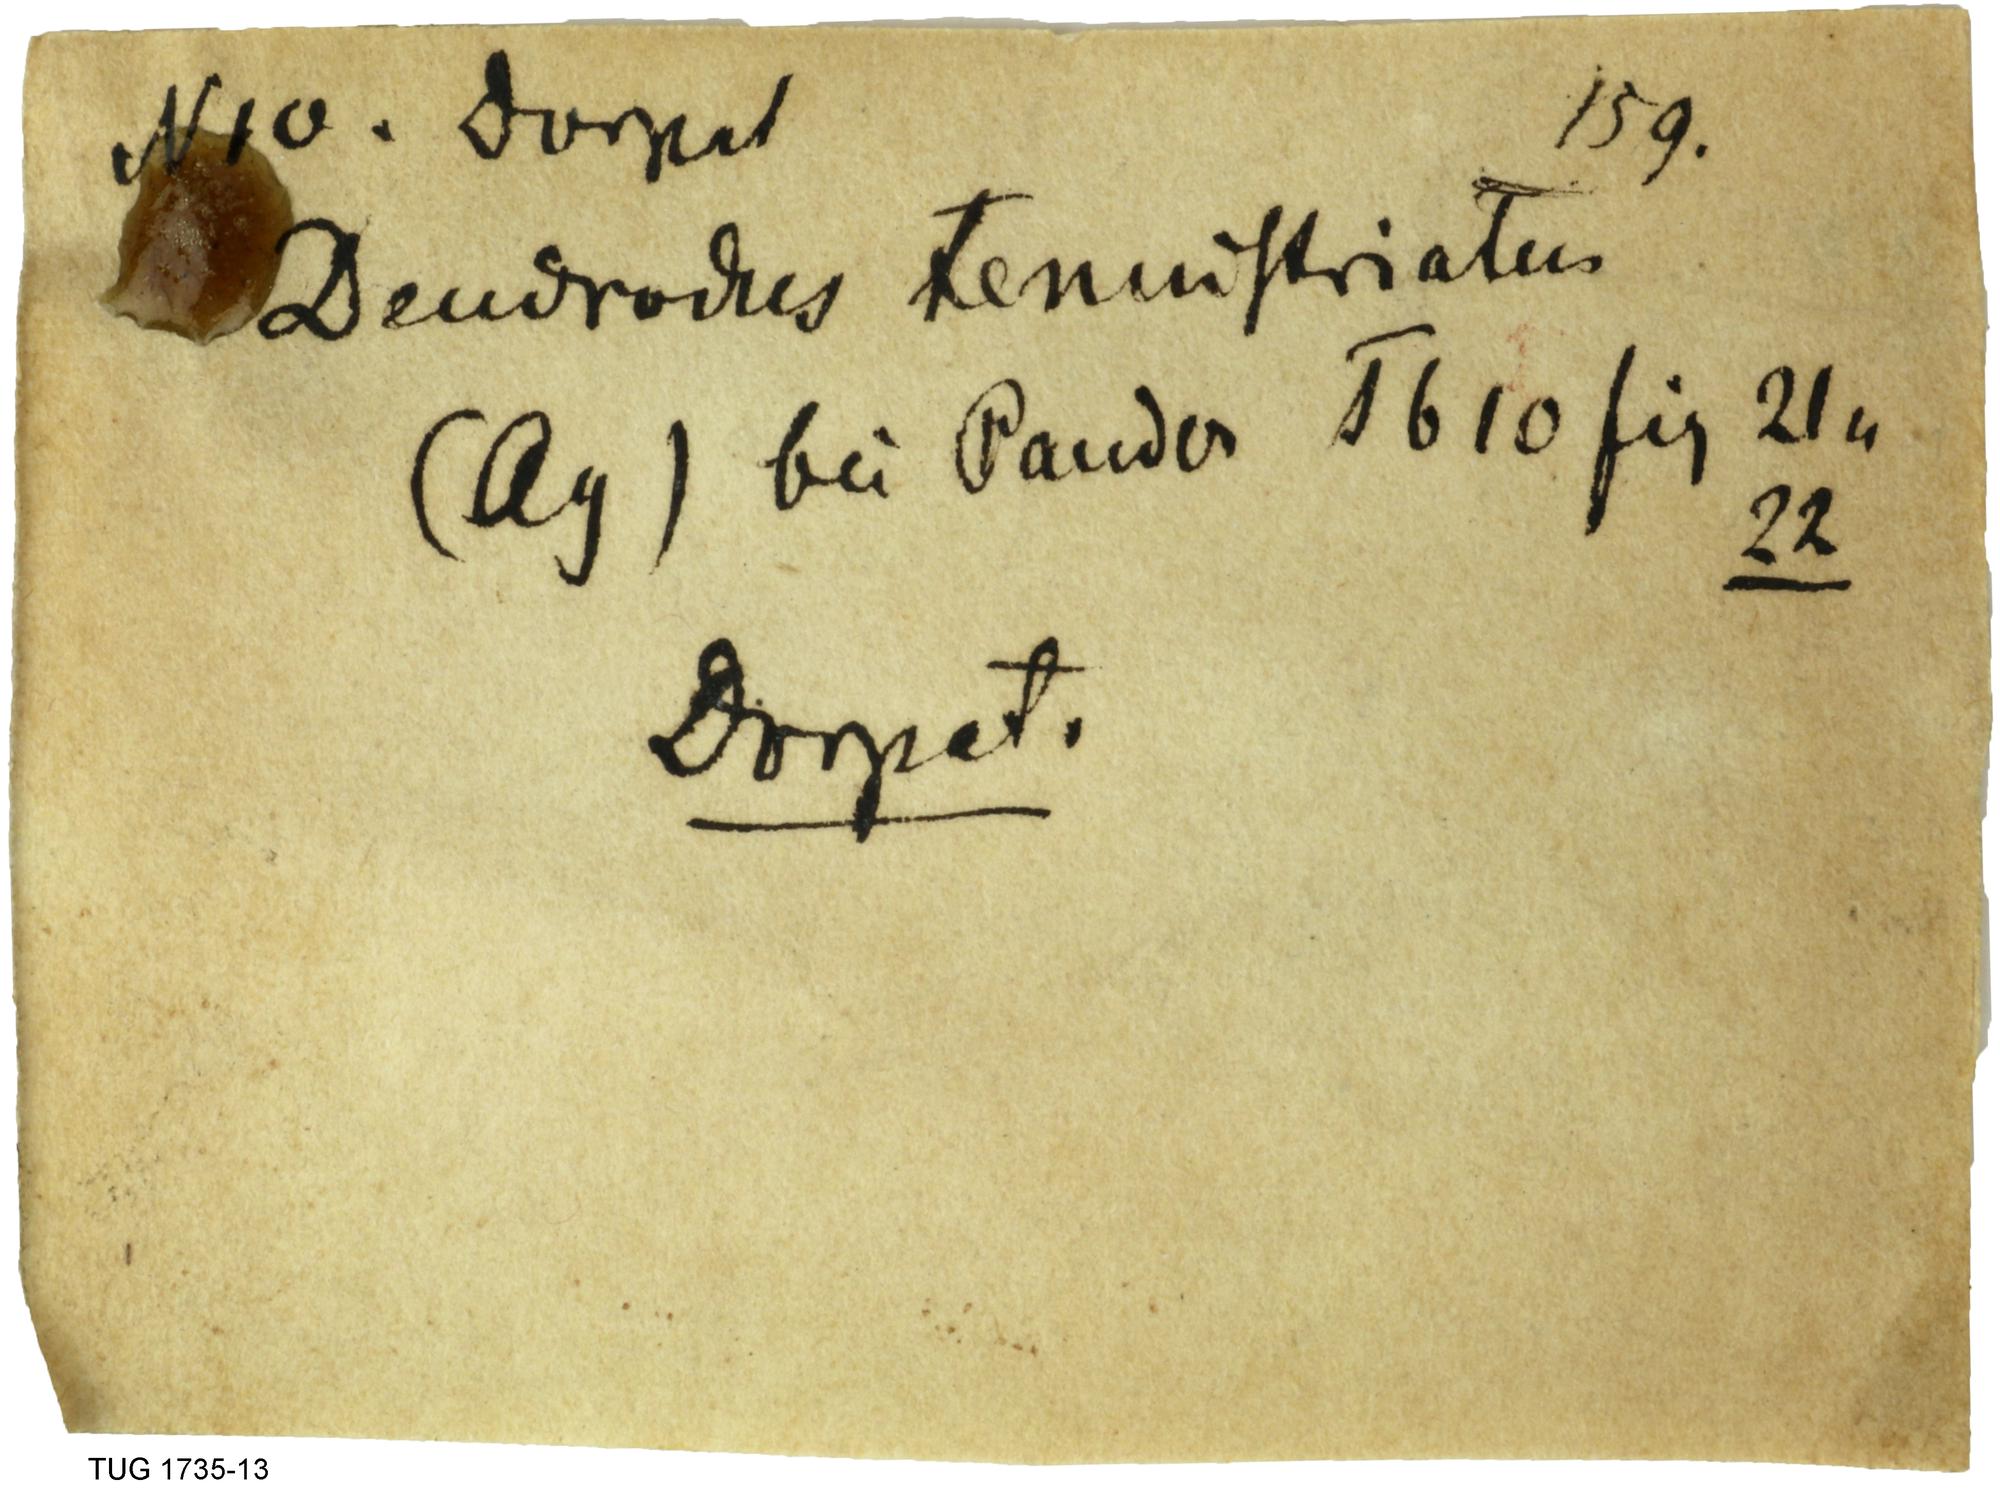 N 10. Dorpat 159.
Dendrodus tenuistriatus
(Ag) bei Pander Tb 10 fig 21 u
22
Dorpat.
TUG 1735-13